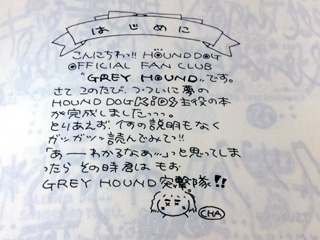 はじめに
こんにちわっ!! HOUND DOG
OFFICIAL FAN CLUB
"GREY HOUND"です。
さて このたび、ついに 夢の
HOUND DOG 主役の本
が完成しましたっっっ。
とりあえず、何の説明もなく
ガッガッと読んでみて!!
「あーーわかるなぁ…」っと思ってしま
ったら その時君は もお
GREY HOUND 突撃隊!!
CHA